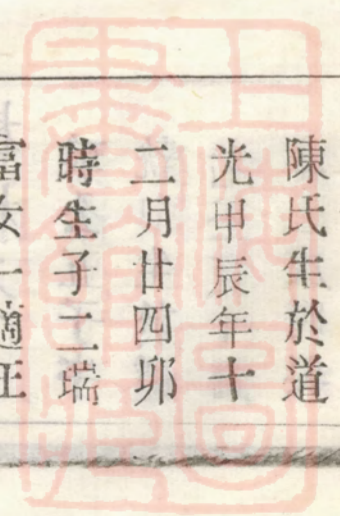 陳氏生於道
光甲辰年十
二月廿四卯
時生子二瑞
富女一適王